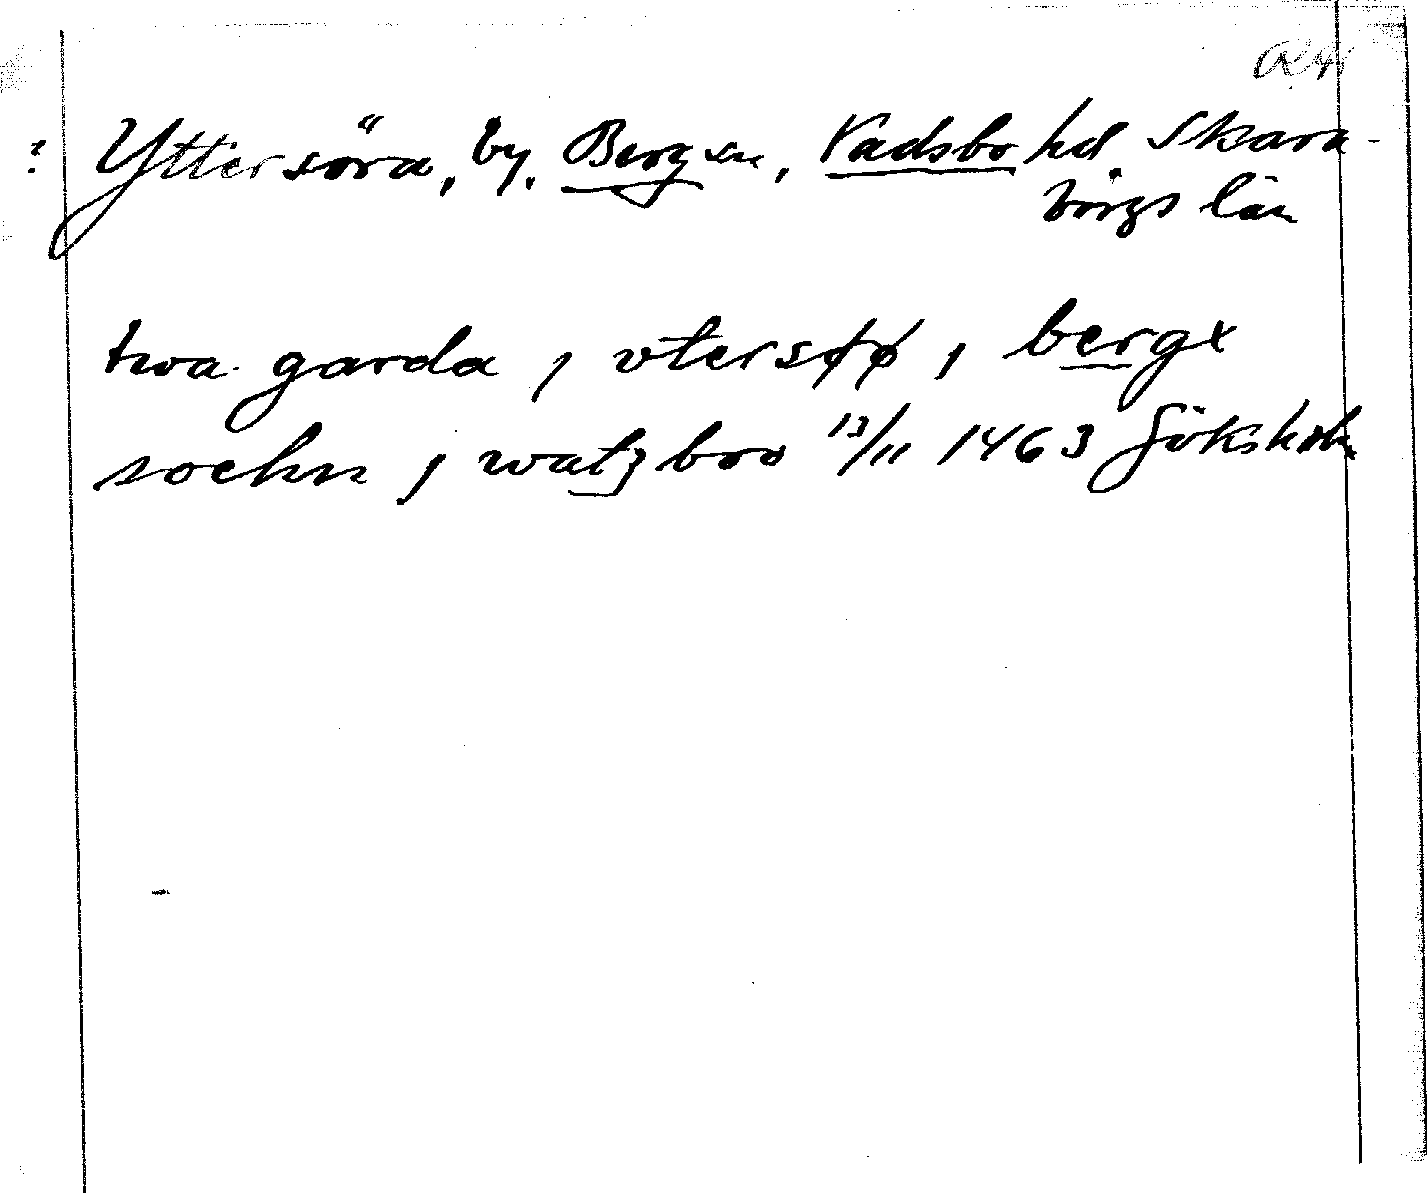 ? Yttersöra, by. Berg sn, Vadsbo hd Skara-
borgs län
twa garda j vtersøø, j bergx
sochn j watzbro 13/11 1463 Söksholm